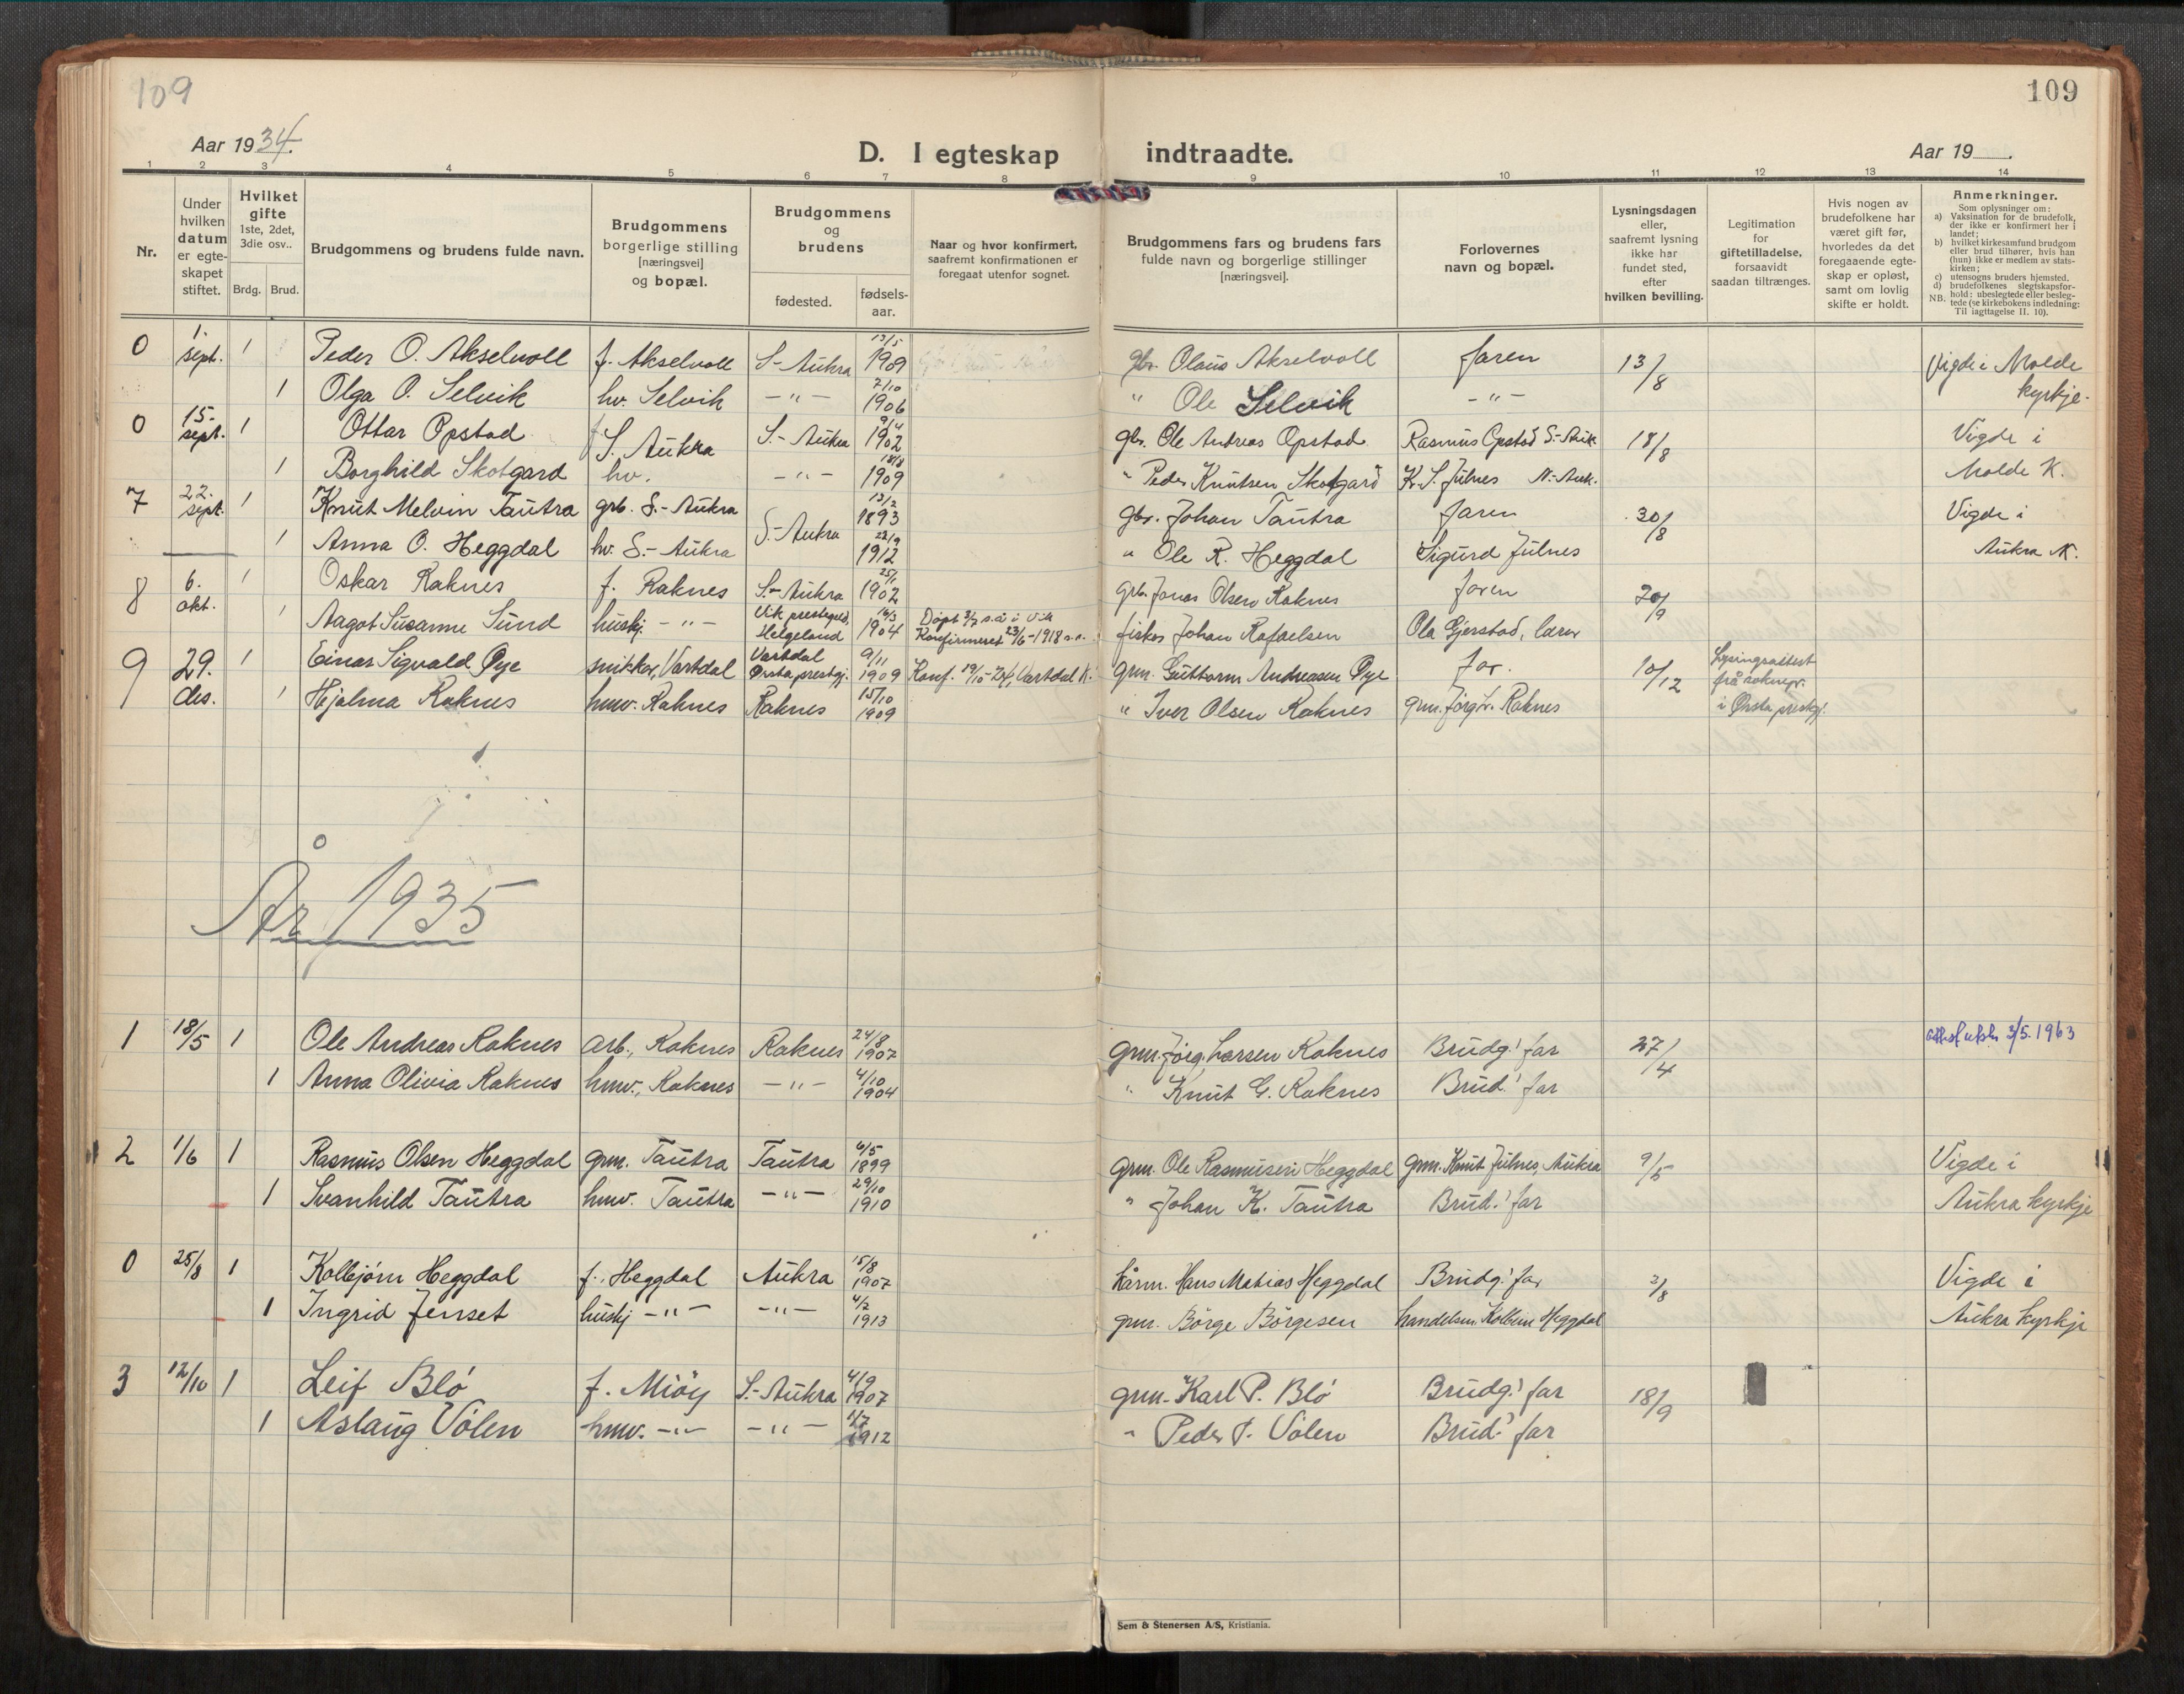 109
109
Aar 1934.
D. I egteskap indtraadte.
Aar 19
1 2 3 4 5 6 7 8 9 10 11 12 13 14
Nr.
Under hvilken datum er egte-skapet stiftet.
Hvilket gifte 1ste, 2det, 3die osv..
Brdg. Brud.
Brudgommens og brudens fulde navn.
Brudgommens borgerlige stilling [næringsvei] og bopæl.
Brudgommens og brudens
fødested. fødsels-aar.
Naar og hvor konfirmert, saafremt konfirmationen er foregaat utenfor sognet.
Brudgommens fars og brudens fars fulde navn og borgerlige stillinger [næringsvei].
Forlovernes navn og bopæl.
Lysningsdagen eller, saafremt lysning ikke har fundet sted, efter hvilken bevilling.
Legitimation for giftetilladelse, forsaavidt saadan tiltrænges.
Hvis nogen av brudefolkene har været gift før, hvorledes da det foregaaende egte-skap er opløst, samt om lovlig skifte er holdt.
Anmerkninger.
Som oplysninger om:
a) Vaksination for de brudefolk, der ikke er konfirmert her i landet;
b) hvilket kirkesamfund brudgom eller brud tilhører, hvis han (hun) ikke er medlem av stats-kirken;
c) utensogns bruders hjemsted.
d) brudefolkenes slegtskapsfor-hold: ubeslegtede eller besleg-tede (se kirkebokens indledning: Til iagttagelse II. 10).
NB.
0 1. sept. 1 Peder O. Akselvoll f. Akselvoll S-Aukra 13/5 1909 gbr. Olaus Akselvoll faren 13/8 Vigde i Molde
1 Olga O. Selvik hv. Selvik -"- 2/10 1906 " Ole Selvik -"- kyrkje.
0 15. sept. 1 Ottar Opstad f. S. Aukra S.-Aukra 9/4 1902 gbr. Ole Andreas Opstad Rasmus Opstad S.-Auk. 18/8 Vigde i
1 Borghild Skotgard hv. -"- 1909 " Peder Knutsen Skotgard K. S. Julnes N.-Auk. Molde K.
7 22. sept. 1 Knut Melvin Tautra grb. S.-Aukra S.-Aukra 13/2 1893 gbr. Johan Tautra faren 30/8 Vigde i
1 Anna O. Heggdal hv. S.-Aukra 22/9 1912 " Ole R. Heggdal Sigurd Julnes Aukra K.
8 6. okt. 1 Oskar Raknes f. Raknes S.-Aukra 25/1 1902 grb. Jonas Olsen Raknes faren 20/9
1 Aagot Susanne Sund huskj. -"- Vik prestegjd. Helgeland 16/3 1904 Døpt 3/7 s.å i Vik Konfirmeret 23/6-1918 s.s. fisker Johan Rafaelsen Ola Gjerstad, lærer
9 29. des. 1 Einar Sigvald Øye snikkar, Vartdal Vartdal Ørsta prestgj. 9/11 1909 Konf. 19/10-24, Vartdal K. grm. Guttorm Andreasen Øye far. 10/12 Lysingsattest frå soknepr. i Ørsta prestgj.
1 Hjalma Raknes hmv. Raknes Raknes 15/10 1909 " Iver Olsen Raknes grm. Jørg. L. Raknes
År 1935
1 18/5 1 Ole Andreas Raknes arb., Raknes Raknes 24/8 1907 grm. Jørg. Larsen Raknes Brudg.' far 27/4 3/5. 1963
1 Anna Olivia Raknes hmv., Raknes -"- 4/10 1904 " Knut G. Raknes Brud.' far
2 1/6 1 Rasmus Olsen Heggdal grm. Tautra Tautra 6/5 1899 grm. Ole Rasmusen Heggdal grm. Knut Julnes, Aukra 9/5 Vigde i
1 Svanhild Tautra hmv. Tautra -"- 29/10 1910 " Johan K. Tautra Brud.' far Aukra kyrkje
0 25/8 1 Kolbjørn Heggdal f. Heggdal Aukra 15/8 1907 kårm. Hans Matias Heggdal Brudg.' far 2/8 Vigde i
1 Ingrid Jenset huskj -"- -"- 4/2 1913 grm. Børge Børgesen handelsm. Kolbein Heggdal Aukra kyrkje
3 12/10 1 Leif Blø f. Miøy S.-Aukra 4/9 1907 grm. Karl P. Blø Brudg.' far 18/9
1 Aslaug Volen hmv. -"- -"- 1912 " Peder P. Volen Brud.' far
Sem & Stenersen A/S, Kristiania.